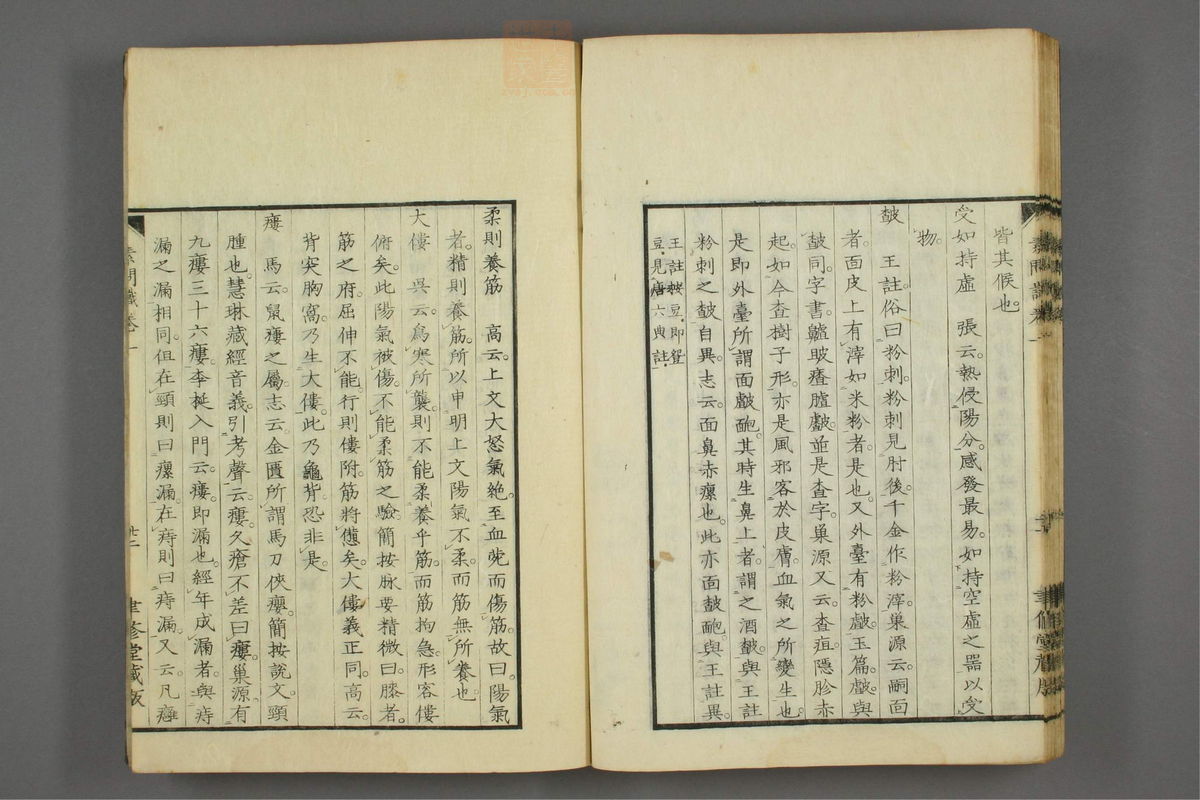 皆其候也。
受如持虛　張云。熱侵陽分。感發最易。如持空虛之器以受
物。
皶　王註。俗曰粉刺。粉刺見肘後。千金作粉滓。巢源云。嗣面
者。面皮上有滓如米粉者。是也。又外臺有粉皻。玉篇皻。與
皶同。字書。皻。皰瘡。皻。並是査字。巢源又云。査疽。隱胗赤
起。如今査樹子形。亦是風邪客於皮膚。血氣之所變生也。
是即外臺所謂面皻皰。其時生鼻上者。謂之酒皶。與王註
粉刺之皶自異。志云。面鼻赤瘰也。此亦面皶皰。與王註異。
王註按豆。即登
豆。見唐六典註。
柔則養筋　高云。上文大怒氣絶。至血菀而傷筋。故曰。陽氣
者。精則養筋。所以申明上文陽氣不柔。而筋無所養也。
大僂　吳云。爲寒所襲。則不能柔養乎筋。而筋拘急。形容僂
俯矣。此陽氣被傷。不能柔筋之驗。簡按脉要精微曰。膝者。
筋之府。屈伸不能。行則僂附。筋將憊矣。大僂義正同。高云。
背突胸窩。乃生大僂。此乃龜背。恐非是。
瘻　馬云。鼠瘻之屬。志云。金匱所謂馬刀俠癭。簡按說文。頸
腫也。慧琳藏經音義。引考聲云。瘻。久瘡不差曰瘻。巢源有
九瘻三十六瘻。李梴入門云。瘻。即漏也。經年成漏者。與痔
漏之漏相同。但在頸則曰瘰漏。在痔則曰痔漏。又云。凡癰
素問識卷一
廿二
聿修堂藏版